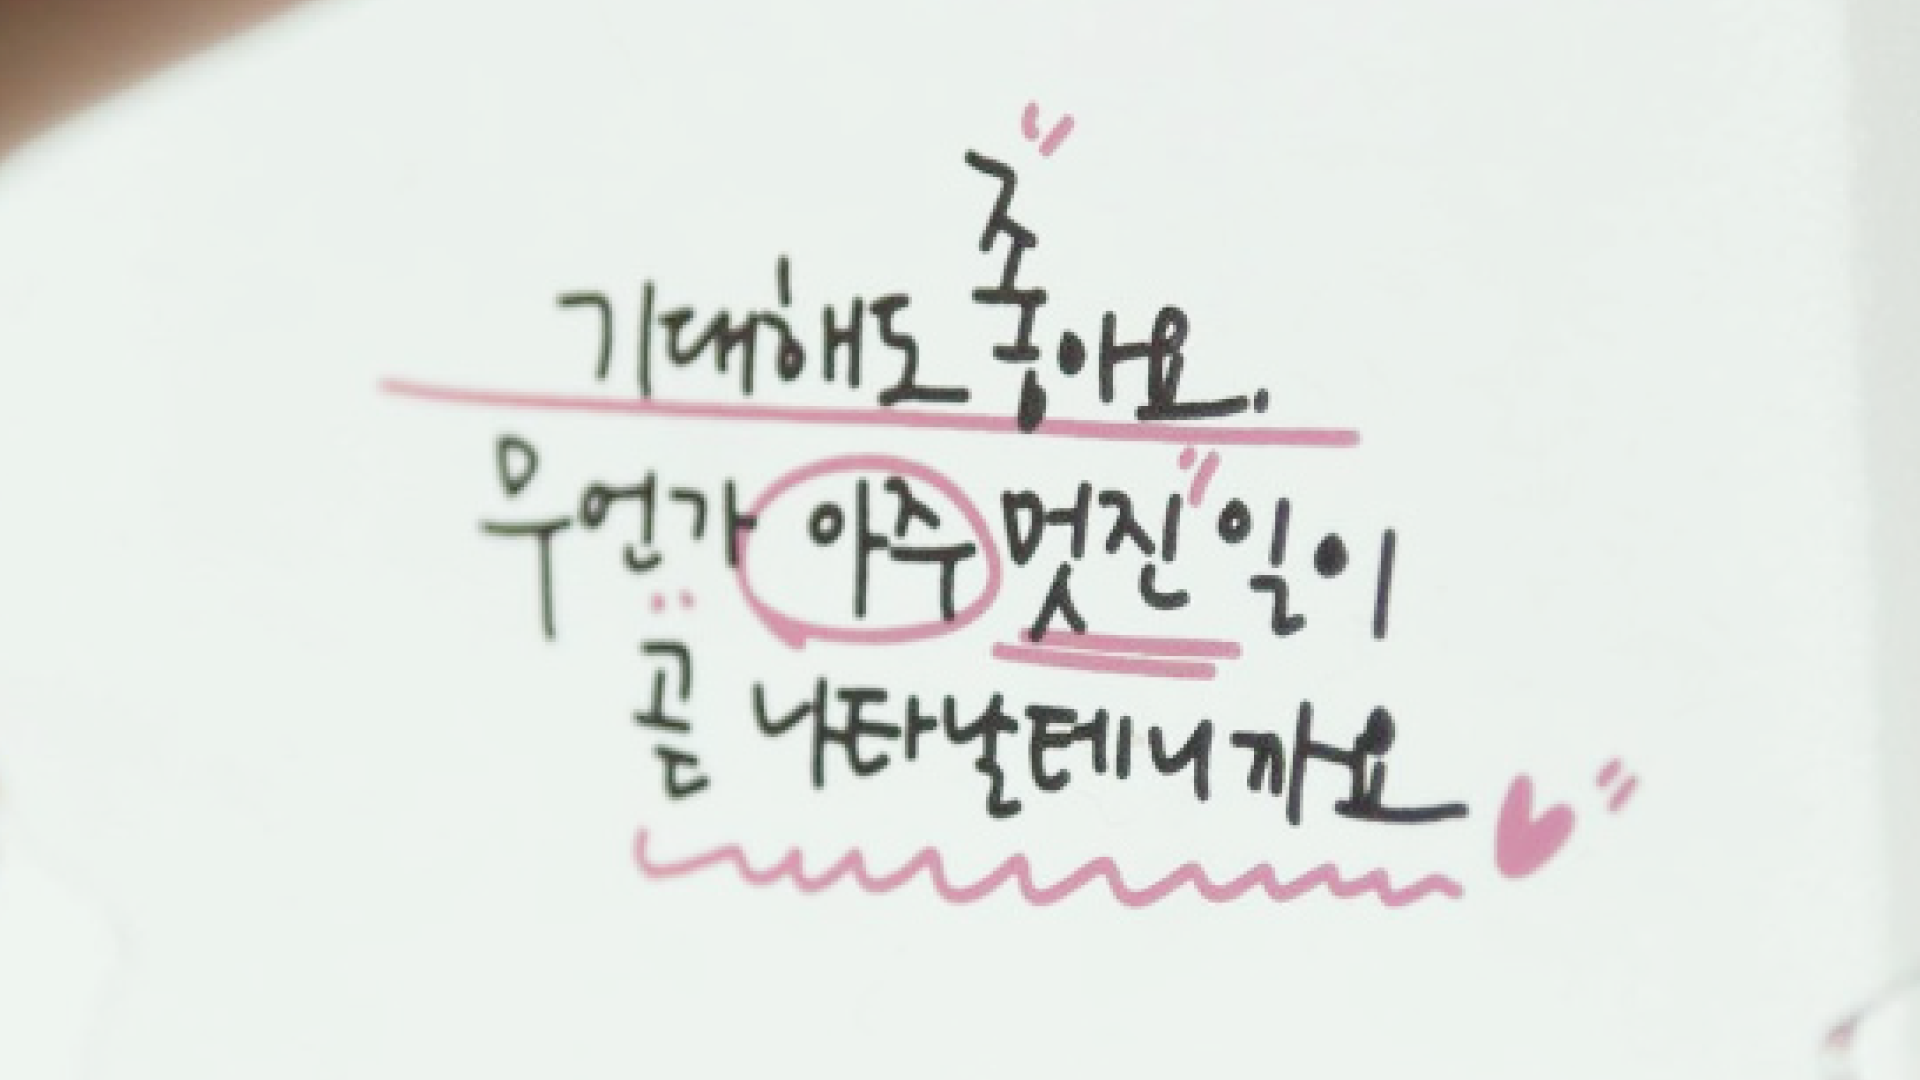 기대해도 좋아요.
무언가 아주 멋진 일이
곧 나타날테니까요